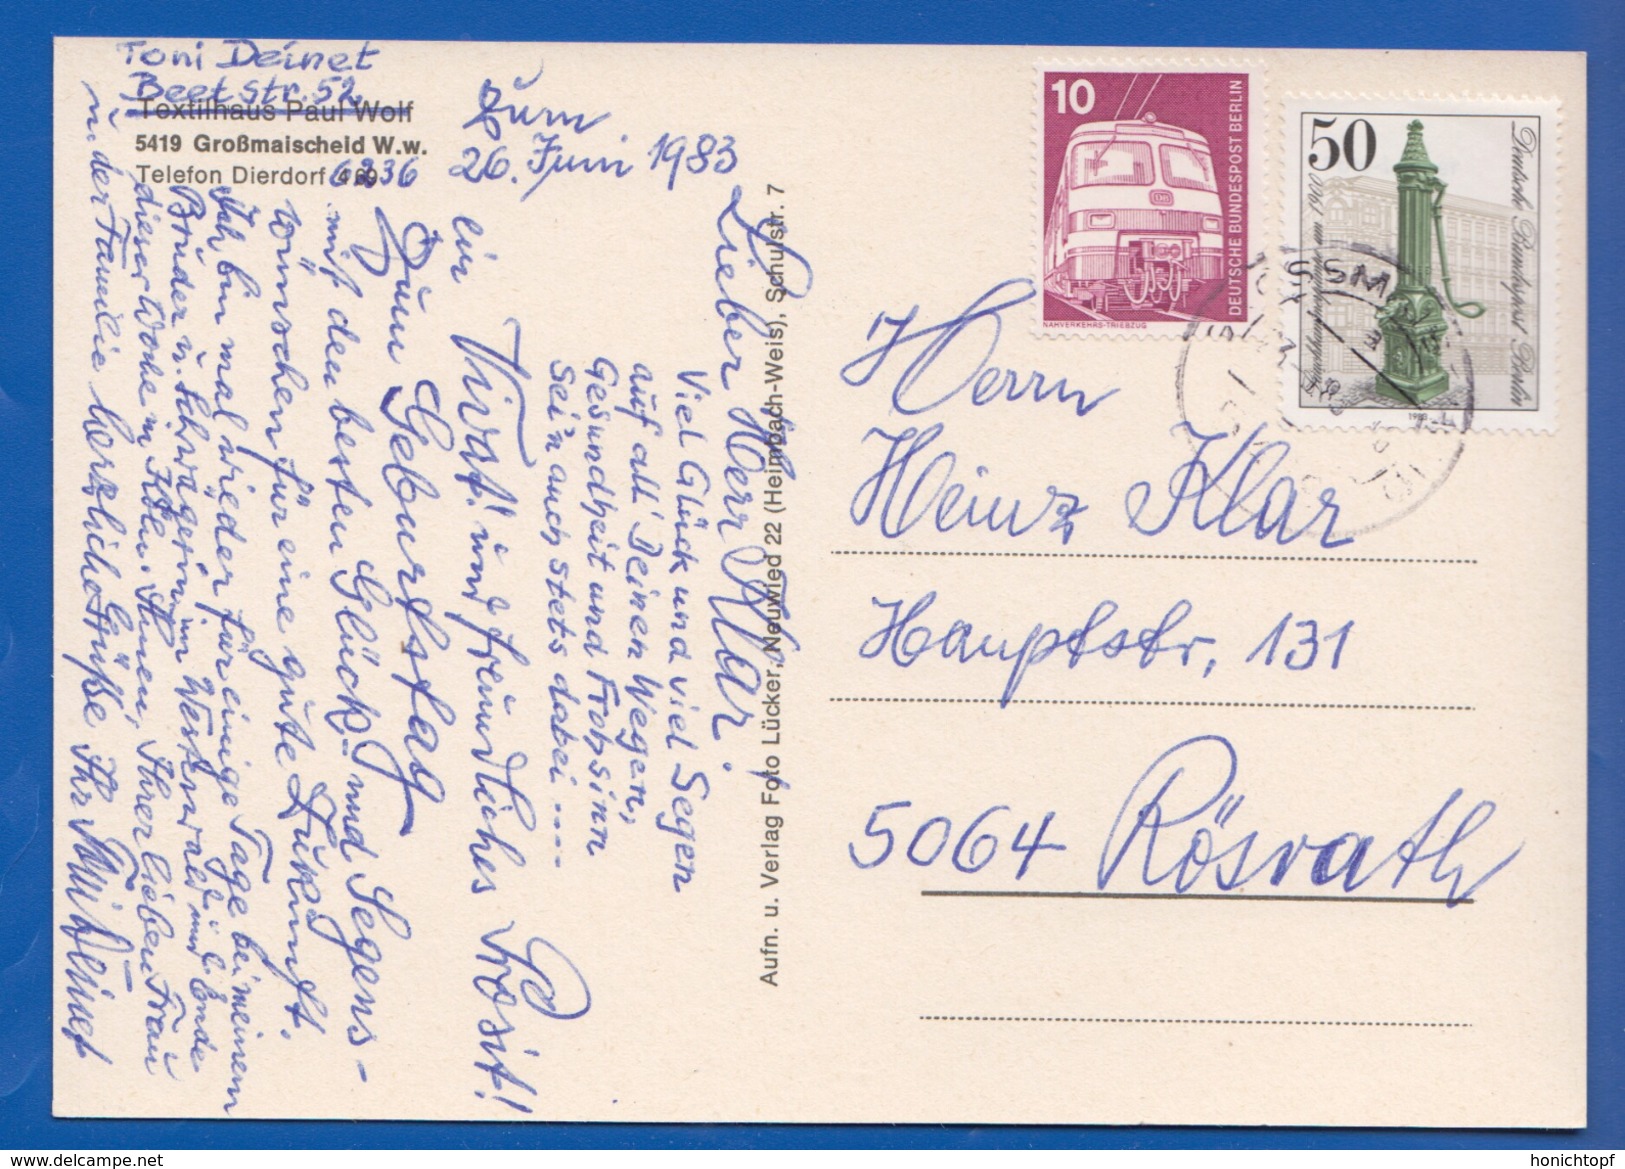 Toni Deinet
Beetstr. 52
Textilhaus Paul Wolf
5419 Großmaischeid W.w.
Telefon Dierdorf 4 69
6236
zum
26. Juni 1983
Lieber Herr Klar.
Viel Glück und viel Segen
auf all' Deinen Wegen,
Gesundheit und Frohsinn
Sei'n auch stets dabei ....
ein Vivat! und freundliches Prosit!
Zum Geburtstag
mit den besten Glück- und Segens-
wünschen für eine gute Zukunft.
Ich bin mal wieder für einige Tage bei meinem
Bruder u. Schwägerin im Westerwald und Ende
dieser Woche in Köln. Ihnen, Ihrer lieben Frau
u. der Familie herzliche Grüße Ihr Toni Deinet
Aufn. u. Verlag Foto Lücker, Neuwied 22 (Heimbach-Weis), Schulstr. 7
10
DEUTSCHE BUNDESPOST BERLIN
NAHVERKEHRS-TRIEBZUG
50
Deutsche Bundespost Berlin
1983
Herrn
Heinz Klar
Hauptstr. 131
5064 Rösrath
delcampe.net
honichtopf